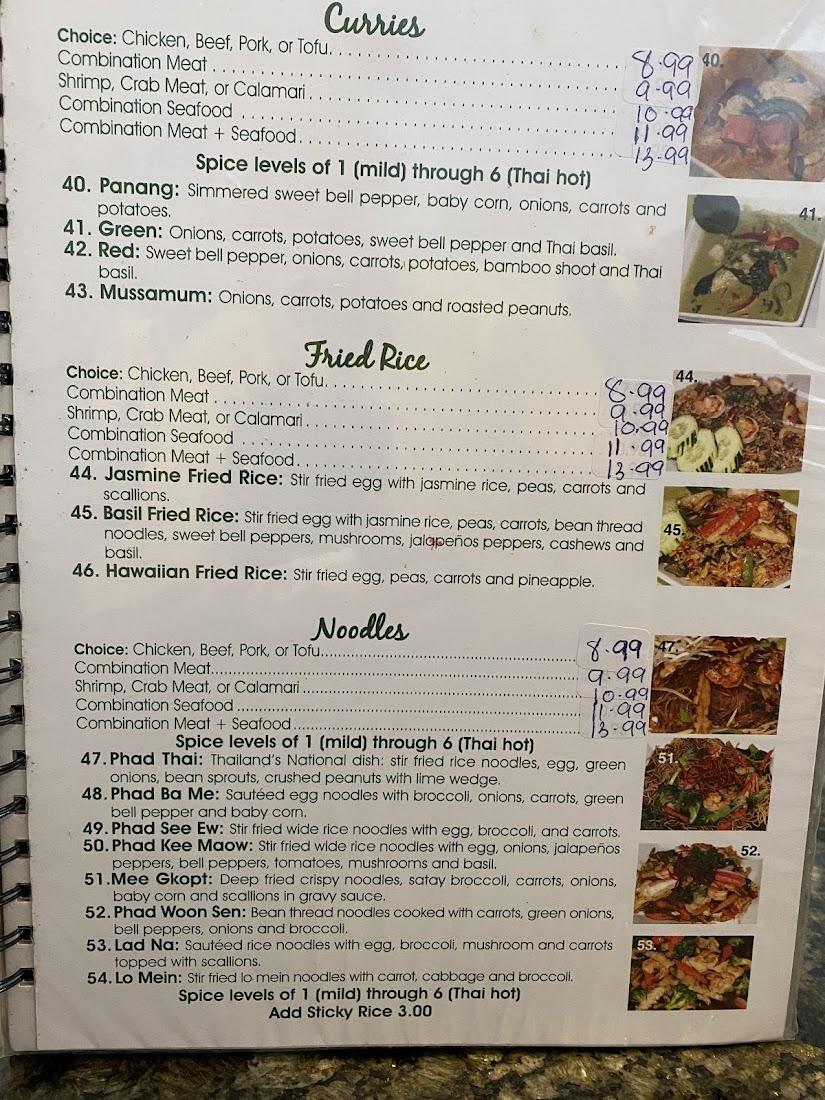 Curries
Choice: Chicken, Beef, Pork, or Tofu. 8.99
Combination Meat 9.99
Shrimp, Crab Meat, or Calamari 10.99
Combination Seafood 11.99
Combination Meat + Seafood. 13.99
40.
Spice levels of 1 (mild) through 6 (Thai hot)
40. Panang: Simmered sweet bell pepper, baby corn, onions, carrots and
potatoes.
41.
41. Green: Onions, carrots, potatoes, sweet bell pepper and Thai basil.
42. Red: Sweet bell pepper, onions, carrots, potatoes, bamboo shoot and Thai
basil.
43. Mussamum: Onions, carrots, potatoes and roasted peanuts.
Fried Rice
Choice: Chicken, Beef, Pork, or Tofu. 8.99
Combination Meat 9.99
Shrimp, Crab Meat, or Calamari 10.99
Combination Seafood 11.99
Combination Meat + Seafood. 13.99
44.
44. Jasmine Fried Rice: Stir fried egg with jasmine rice, peas, carrots and
scallions.
45. Basil Fried Rice: Stir fried egg with jasmine rice, peas, carrots, bean thread
noodles, sweet bell peppers, mushrooms, jalapeños peppers, cashews and
basil.
45.
46. Hawaiian Fried Rice: Stir fried egg, peas, carrots and pineapple.
Noodles
Choice: Chicken, Beef, Pork, or Tofu. 8.99
Combination Meat 9.99
Shrimp, Crab Meat, or Calamari 10.99
Combination Seafood 11.99
Combination Meat + Seafood 13.99
47.
Spice levels of 1 (mild) through 6 (Thai hot)
47. Phad Thai: Thailand's National dish: stir fried rice noodles, egg, green
onions, bean sprouts, crushed peanuts with lime wedge.
51.
48. Phad Ba Me: Sautéed egg noodles with broccoli, onions, carrots, green
bell pepper and baby corn.
49. Phad See Ew: Stir fried wide rice noodles with egg, broccoli, and carrots.
50. Phad Kee Maow: Stir fried wide rice noodles with egg, onions, jalapeños
peppers, bell peppers, tomatoes, mushrooms and basil.
52.
51. Mee Gkopt: Deep fried crispy noodles, satay broccoli, carrots, onions,
baby corn and scallions in gravy sauce.
52. Phad Woon Sen: Bean thread noodles cooked with carrots, green onions,
bell peppers, onions and broccoli.
53.
53. Lad Na: Sautéed rice noodles with egg, broccoli, mushroom and carrots
topped with scallions.
54. Lo Mein: Stir fried lo mein noodles with carrot, cabbage and broccoli.
Spice levels of 1 (mild) through 6 (Thai hot)
Add Sticky Rice 3.00